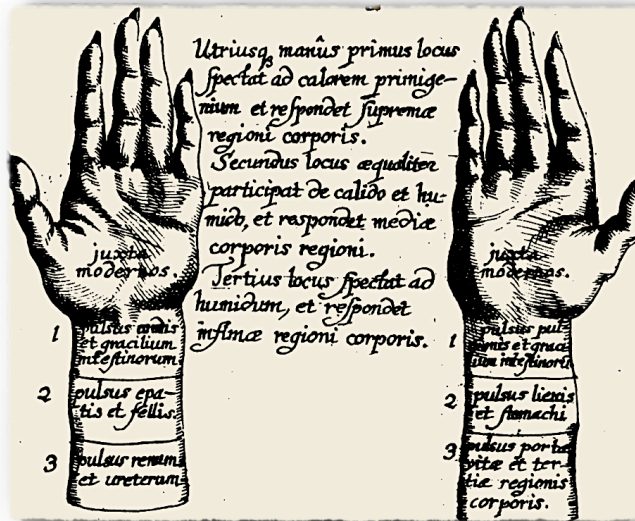 Utriusq₃ manûs primus locus
ſpectat ad calorem primige-
nium et reſpondet ſupremæ
regioni corporis.
Secundus locus æqualiter
participat de calido et hu-
mido, et respondet mediæ
corporis regioni.
Tertius locus ſpectat ad
humidum, et reſpondet
infimæ regioni corporis.
juxta
modernos.
1 pulsus cordis
et gracilium
inteſtinorum
2 pulsus epa-
tis et fellis.
3 pulsus renum
et ureterum.
juxta
modernos.
1 pulsus pul-
monis et graci-
lium inteſtinorū
2 pulsus lienis
et ſtomachi
3 pulsus portæ
vitæ et ter-
tiæ regionis
corporis.